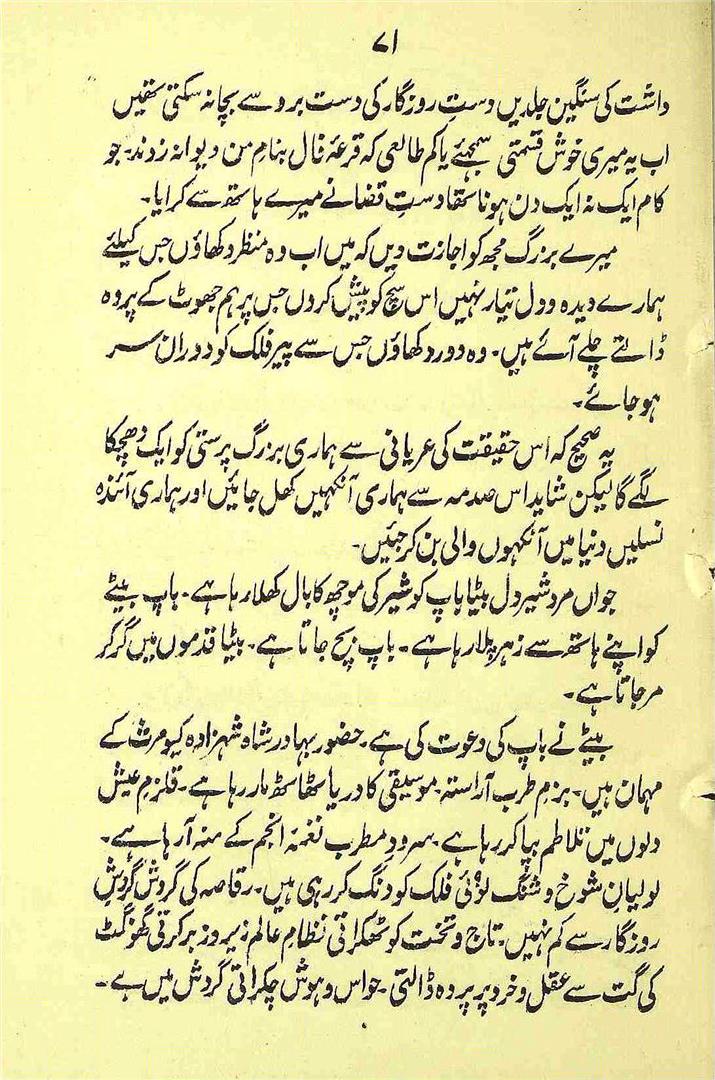 ۷۱
داشت کی سنگین جلدیں دستِ روزگار کی دست برد سے بچا نہ سکتی تھیں
اب یہ میری خوش قسمتی سمجھئے یا کم طالعی کہ قرعۂ فال بنامِ من دیوانہ زدند۔ جو
کام ایک نہ ایک دن ہونا تھا دستِ قضا نے میرے ہاتھ سے کرایا۔
میرے بزرگ مجھ کو اجازت دیں کہ میں اب وہ منظر دکھاؤں جس کیلئے
ہمارے دیدہ و دل تیار نہیں اس سچ کو پیش کردوں جس پر ہم جھوٹ کے پردہ
ڈالتے چلے آئے ہیں۔ وہ دور دکھاؤں جس سے پیر فلک کو دوران سر
ہو جائے۔
یہ صحیح کہ اس حقیقت کی عریانی سے ہماری بزرگ پرستی کو ایک دھچکا
لگے گا لیکن شاید اس صدمہ سے ہماری آنکھیں کھل جائیں اور ہماری آئندہ
نسلیں دنیا میں آنکھوں والی بن کر جئیں۔
جواں مرد شیر دل بیٹا باپ کو شیر کی مونچھ کا بال کھلا رہا ہے۔ باپ بیٹے
کو اپنے ہاتھ سے زہر پلا رہا ہے۔ باپ بچ جاتا ہے۔ بیٹا قدموں میں گر کر
مرجاتا ہے۔
بیٹے نے باپ کی دعوت کی ہے۔ حضور بہادر شاہ شہزادہ کیومرث کے
مہمان ہیں۔ بزم طرب آراستہ۔ موسیقی کا دریا ٹھاٹھ مار رہا ہے۔ قلزمِ عیش
دلوں میں تلاطم بپا کر رہا ہے۔ سرودِ مطرب نغمۂ انجم کے منہ آ رہا ہے۔
لولیانِ شوخ و شنگ لوئی فلک کو دنگ کر رہی ہیں۔ رقاصہ کی گردش گردشِ
روزگار سے کم نہیں۔ تاج و تخت کو ٹھکراتی نظامِ عالم زیر و زبر کرتی گھونگٹ
کی گت سے عقل و خرد پر پردہ ڈالتی۔ حواس و ہوش چکراتی گردش میں ہے۔